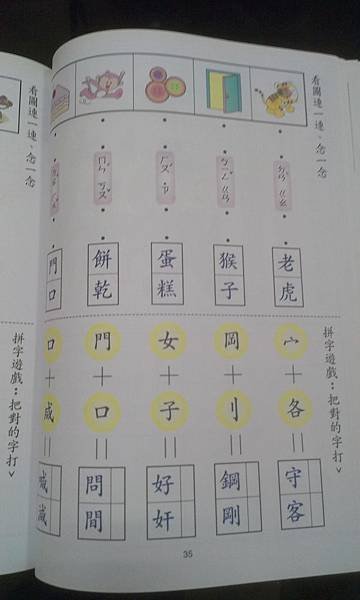 看圖連一連、念一念
老虎
猴子
蛋糕
餅乾
門口
拼字遊戲：把對的字打ˇ
宀＋各＝
守
客
岡＋刂＝
鋼
剛
女＋子＝
好
奸
門＋口＝
問
間
口＋咸＝
看圖連一連、念一念
拼字遊戲：把對的字打ˇ
35